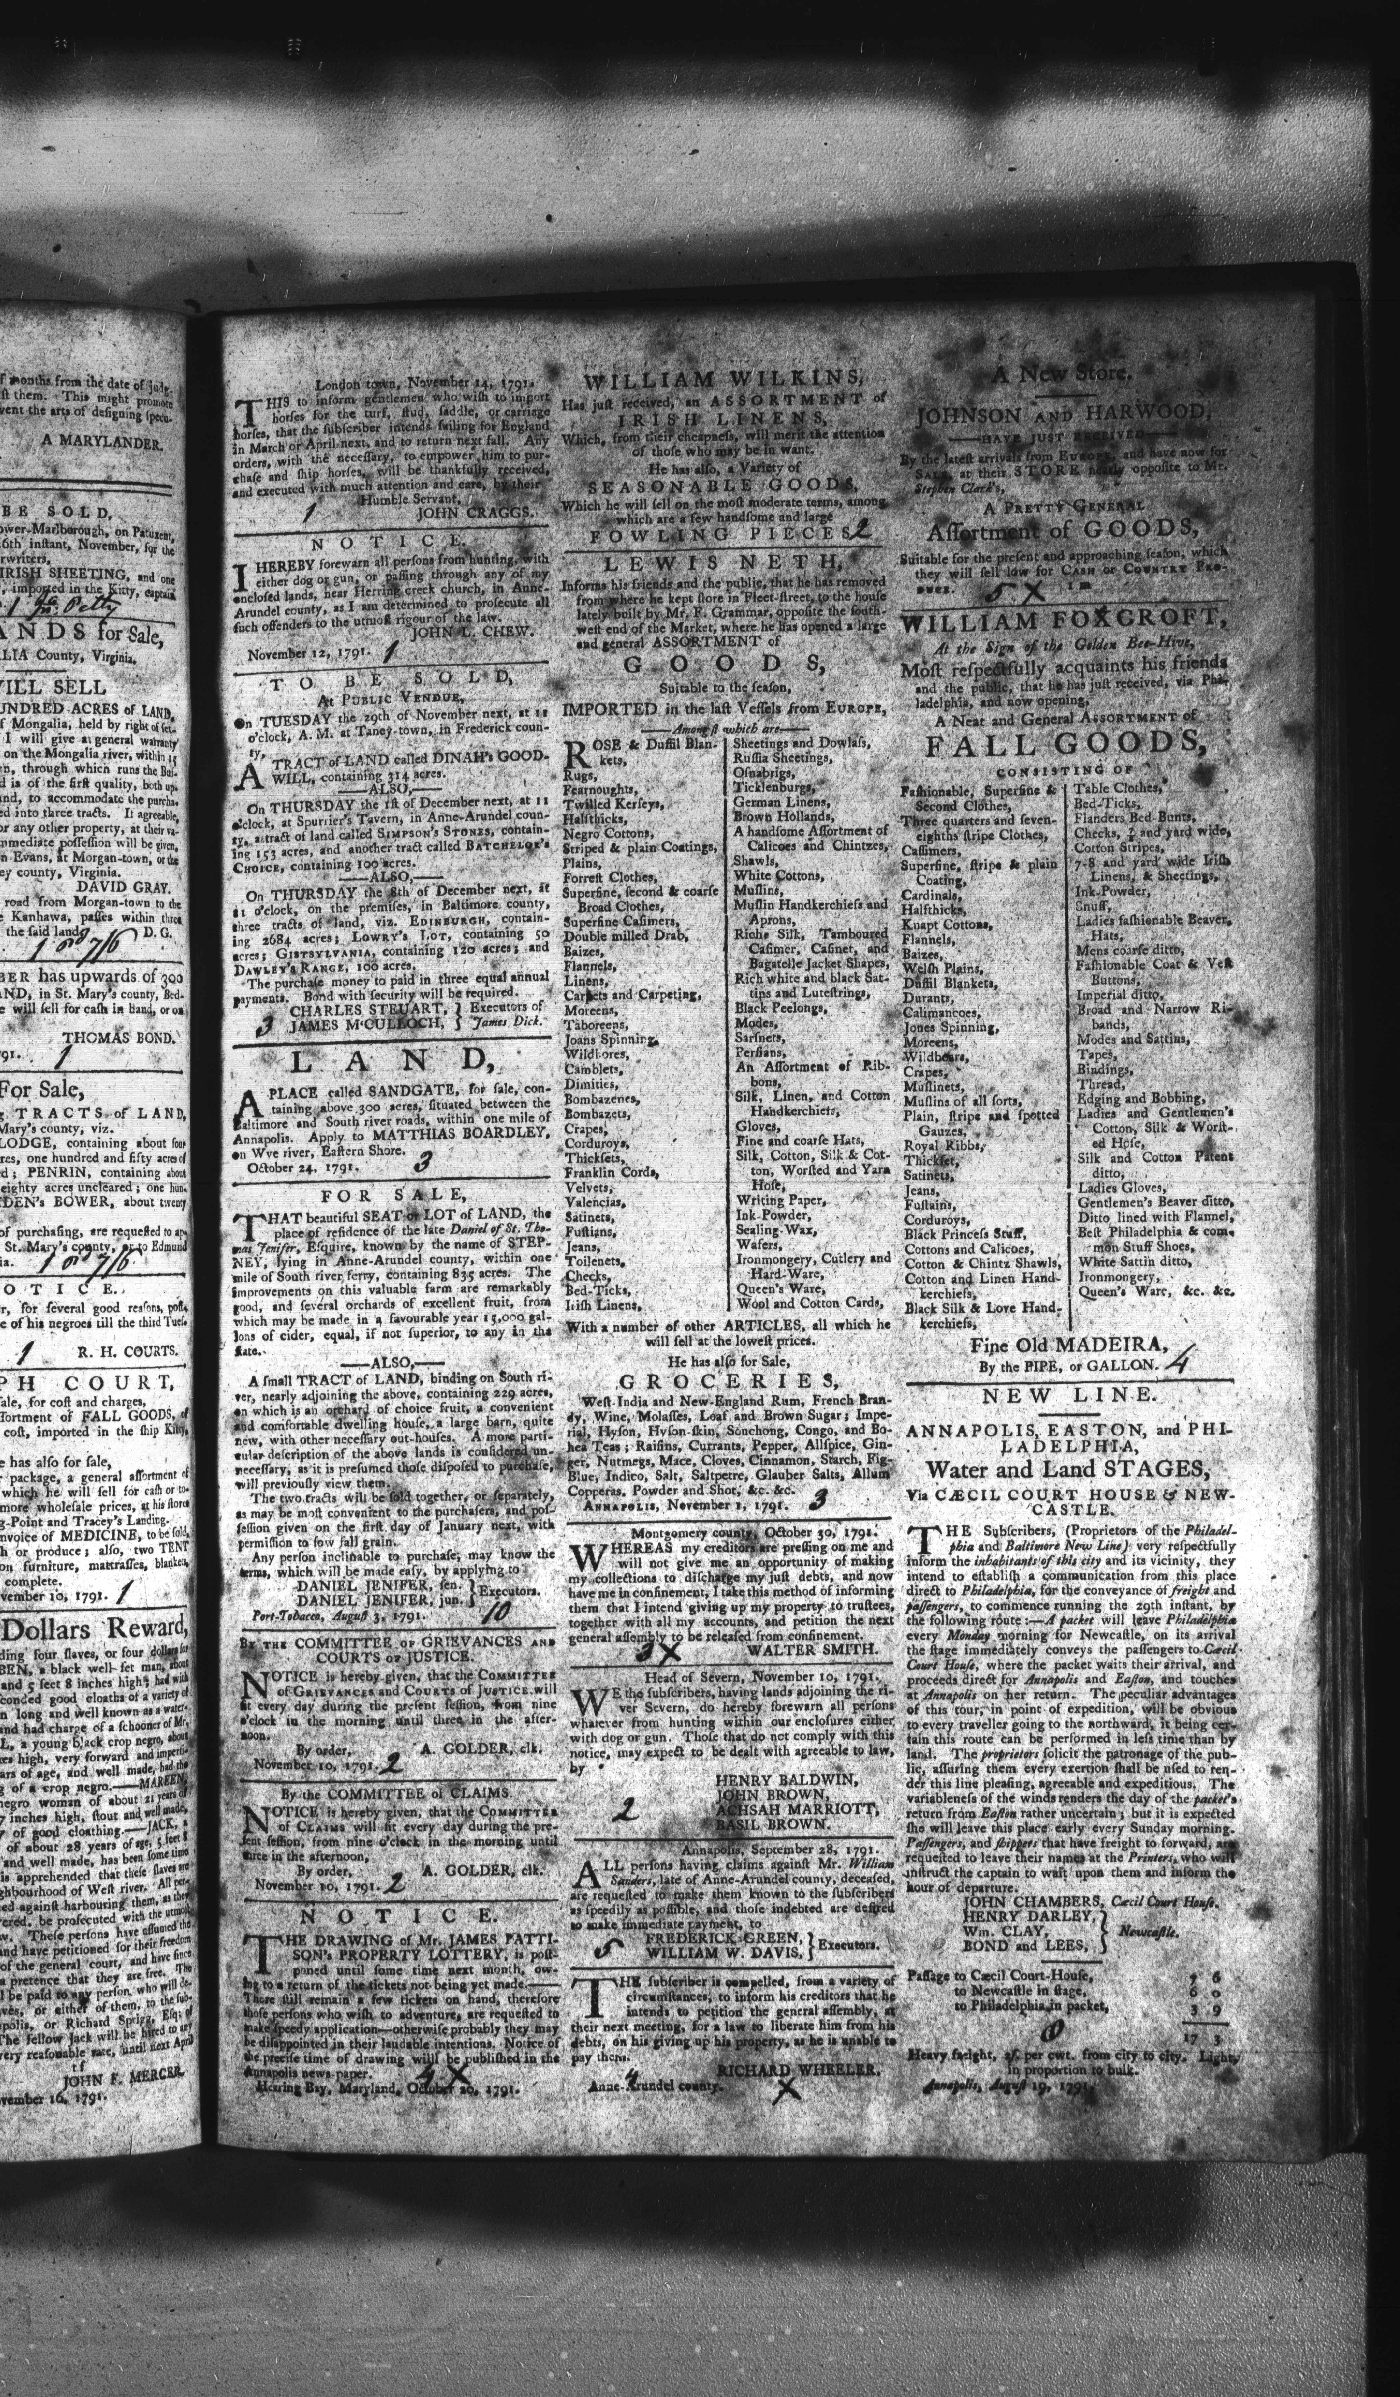 f months from the date of judg-
ft them. This might promote
vent the arts of designing specu-
A MARYLANDER.
BE SOLD,
ower-Marlborough, on Patuxent,
6th instant, November, for the
rwriters,
IRISH SHEETING, and one
, imported in the Kitty, captain
ANDS for Sale,
LIA County, Virginia.
VILL SELL
UNDRED ACRES of LAND,
f Mongalia, held by right of set-
I will give a general warranty
on the Mongalia river, within 15
n, through which runs the
d is of the first quality, both up-
nd, to accommodate the purcha-
ed into three tracts. It agreeable,
or any other property, at their va-
mmediate possession will be given,
n Evans, at Morgan-town, or the
ey county, Virginia.
DAVID GRAY.
road from Morgan-town to the
e Kanhawa, passes within three
the said land. D. G.
1 pd 7/6
BER has upwards of 300
AND, in St. Mary's county, Bed-
e will sell for cash in hand, or on
THOMAS BOND.
791. 1
For Sale,
g TRACTS of LAND,
Mary's county, viz.
LODGE, containing about four
res, one hundred and fifty acres of
d; PENRIN, containing about
eighty acres uncleared; one hun-
DEN's BOWER, about twenty
of purchasing, are requested to ap-
St. Mary's county, or to Edmund
ia. 1 pd 7/6
OTICE.
r, for several good reasons, post-
e of his negroes till the third Tues-
1 R. H. COURTS.
PH COURT,
ale, for cost and charges,
fortment of FALL GOODS, of
cost, imported in the ship Kitty,
e has also for sale,
r package, a general assortment of
which he will sell for cash or to-
more wholesale prices, at his stores
g-Point and Tracey's Landing.
nvoice of MEDICINE, to be sold,
h or produce; also, two TENT
on furniture, mattrasses, blankets,
complete.
vember 10, 1791. 1
Dollars Reward,
ding four slaves, or four dollars for
BEN, a black well-set man, about
and 5 feet 8 inches high; had with
conded good cloaths of a variety of
n long and well known as a water-
nd had charge of a schooner of Mr.
L, a young black crop negro, about
es high, very forward and imperti-
ars of age, and well made, had the
g of a crop negro.——MAREEN,
negro woman of about 21 years of
7 inches high, stout and well made,
y of good cloathing.——JACK, a
of about 28 years of age, 5 feet 8
and well made, has been some time
is apprehended that these slaves are
ghbourhood of West river. All per-
ed against harbouring them, as they
ered, be prosecuted with the utmost
w. These persons have assumed the
nd have petitioned for their freedom
of the general court, and have since
a pretence that they are free. The
l be paid to any person who will de-
ves, or either of them, to the sub-
apolis, or Richard Sprigg, Esq; of
The fellow Jack will be hired to any
very reasonable rate, until next April
tf
JOHN F. MERCER.
vember 16, 1791.
London town, November 14, 1791.
THIS to inform gentlemen who wish to import
horses for the turf, stud, saddle, or carriage
horses, that the subscriber intends sailing for England
in March or April next, and to return next fall. Any
orders, with the necessary, to empower him to pur-
chase and ship horses, will be thankfully received,
and executed with much attention and care, by their
Humble Servant,
1 JOHN CRAGGS.
NOTICE.
I HEREBY forewarn all persons from hunting, with
either dog or gun, or passing through any of my
enclosed lands, near Herring creek church, in Anne-
Arundel county, as I am determined to prosecute all
such offenders to the utmost rigour of the law.
JOHN L. CHEW.
November 12, 1791. 1
TO BE SOLD,
At PUBLIC VENDUE,
On TUESDAY the 29th of November next, at 11
o'clock, A. M. at Taney-town, in Frederick coun-
ty,
A TRACT of LAND called DINAH's GOOD-
WILL, containing 314 acres.
——ALSO,——
On THURSDAY the 1st of December next, at 11
o'clock, at Spurrier's Tavern, in Anne-Arundel coun-
ty, a tract of land called SIMPSON'S STONES, contain-
ing 153 acres, and another tract called BATCHELOR'S
CHOICE, containing 100 acres.
——ALSO,——
On THURSDAY the 8th of December next, at
11 o'clock, on the premises, in Baltimore county,
three tracts of land, viz. EDINBURGH, contain-
ing 2684 acres; LOWRY'S LOT, containing 50
acres; GISTSYLVANIA, containing 120 acres; and
DAWLEY'S RANGE, 100 acres.
The purchase money to paid in three equal annual
payments. Bond with security will be required.
CHARLES STEUART, } Executors of
3 JAMES M'CULLOCH, } James Dick.
LAND,
A PLACE called SANDGATE, for sale, con-
taining above 300 acres, situated between the
Baltimore and South river roads, within one mile of
Annapolis. Apply to MATTHIAS BOARDLEY,
on Wye river, Eastern Shore.
October 24, 1791. 3
FOR SALE,
THAT beautiful SEAT or LOT of LAND, the
place of residence of the late Daniel of St. Tho-
mas Jenifer, Esquire, known by the name of STEP-
NEY, lying in Anne-Arundel county, within one
mile of South river ferry, containing 835 acres. The
improvements on this valuable farm are remarkably
good, and several orchards of excellent fruit, from
which may be made in a favourable year 15,000 gal-
lons of cider, equal, if not superior, to any in the
state.
——ALSO,——
A small TRACT of LAND, binding on South ri-
ver, nearly adjoining the above, containing 229 acres,
on which is an orchard of choice fruit, a convenient
and comfortable dwelling house, a large barn, quite
new, with other necessary out-houses. A more parti-
cular description of the above lands is considered un-
necessary, as it is presumed those disposed to purchase,
will previously view them.
The two tracts will be sold together, or separately,
as may be most convenient to the purchasers, and pos-
session given on the first day of January next, with
permission to sow fall grain.
Any person inclinable to purchase, may know the
terms, which will be made easy, by applying to
DANIEL JENIFER, sen. } Executors.
DANIEL JENIFER, jun. }
Port-Tobacco, August 3, 1791. 10
BY THE COMMITTEE OF GRIEVANCES AND
COURTS OF JUSTICE.
NOTICE is hereby given, that the COMMITTEE
of GRIEVANCES and COURTS of JUSTICE will
sit every day during the present session, from nine
o'clock in the morning until three in the after-
noon.
By order, A. GOLDER, clk.
November 10, 1791. 2
By the COMMITTEE of CLAIMS.
NOTICE is hereby given, that the COMMITTEE
of CLAIMS will sit every day during the pre-
sent session, from nine o'clock in the morning until
three in the afternoon,
By order, A. GOLDER, clk.
November 10, 1791. 2
NOTICE.
THE DRAWING of Mr. JAMES PATTI-
SON's PROPERTY LOTTERY, is post-
poned until some time next month, ow-
ing to a return of the tickets not being yet made.——
There still remain a few tickets on hand, therefore
those persons who wish to adventure, are requested to
make speedy application—otherwise probably they may
be disappointed in their laudable intentions. Notice of
the precise time of drawing will be published in the
Annapolis news-paper. 4 X
Herring Bay, Maryland, October 20, 1791.
WILLIAM WILKINS,
Has just received, an ASSORTMENT of
IRISH LINENS,
Which, from their cheapness, will merit the attention
of those who may be in want.
He has also, a Variety of
SEASONABLE GOODS,
Which he will sell on the most moderate terms, among
which are a few handsome and large
FOWLING PIECES 2
LEWIS NETH,
Informs his friends and the public, that he has removed
from where he kept store in Fleet-street, to the house
lately built by Mr. F. Grammar, opposite the south-
west end of the Market, where he has opened a large
and general ASSORTMENT of
GOODS,
Suitable to the season,
IMPORTED in the last Vessels from EUROPE,
——Amongst which are——
ROSE & Duffil Blan-
kets,
Rugs,
Fearnoughts,
Twilled Kerseys,
Halfthicks,
Negro Cottons,
Striped & plain Coatings,
Plains,
Forrest Clothes,
Superfine, second & coarse
Broad Clothes,
Superfine Casimers,
Double milled Drab,
Baizes,
Flannels,
Linens,
Carpets and Carpeting,
Moreens,
Taboreens,
Joans Spinning,
Wildbores,
Camblets,
Dimities,
Bombazenes,
Bombazets,
Crapes,
Corduroys,
Thicksets,
Franklin Cords,
Velvets,
Valencias,
Satinets,
Fustians,
Jeans,
Toilenets,
Checks,
Bed-Ticks,
Irish Linens,
Sheetings and Dowlass,
Russia Sheetings,
Osnabrigs,
Ticklenburgs,
German Linens,
Brown Hollands,
A handsome Assortment of
Calicoes and Chintzes,
Shawls,
White Cottons,
Muslins,
Muslin Handkerchiefs and
Aprons,
Riche Silk, Tamboured
Casimer, Casinet, and
Bagatelle Jacket Shapes,
Rich white and black Sat-
tins and Lutestrings,
Black Peelongs,
Modes,
Sarsnets,
Persians,
An Assortment of Rib-
bons,
Silk, Linen, and Cotton
Handkerchiefs,
Gloves,
Fine and coarse Hats,
Silk, Cotton, Silk & Cot-
ton, Worsted and Yarn
Hose,
Writing Paper,
Ink-Powder,
Sealing-Wax,
Wafers,
Ironmongery, Cutlery and
Hard-Ware,
Queen's Ware,
Wool and Cotton Cards,
With a number of other ARTICLES, all which he
will sell at the lowest prices.
He has also for Sale,
GROCERIES,
West-India and New-England Rum, French Bran-
dy, Wine, Molasses, Loaf and Brown Sugar; Impe-
rial, Hyson, Hyson-skin, Sonchong, Congo, and Bo-
hea Teas; Raisins, Currants, Pepper, Allspice, Gin-
ger, Nutmegs, Mace, Cloves, Cinnamon, Starch, Fig-
Blue, Indico, Salt, Saltpetre, Glauber Salts, Allum
Copperas, Powder and Shot, &c. &c.
ANNAPOLIS, November 1, 1791. 3
Montgomery county, October 30, 1791.
WHEREAS my creditors are pressing on me and
will not give me an opportunity of making
my collections to discharge my just debts, and now
have me in confinement, I take this method of informing
them that I intend giving up my property to trustees,
together with all my accounts, and petition the next
general assembly to be released from confinement.
3 X WALTER SMITH.
Head of Severn, November 10, 1791.
WE the subscribers, having lands adjoining the ri-
ver Severn, do hereby forewarn all persons
whatever from hunting within our enclosures either
with dog or gun. Those that do not comply with this
notice, may expect to be dealt with agreeable to law,
by
HENRY BALDWIN,
JOHN BROWN,
2 ACHSAH MARRIOTT,
BASIL BROWN.
Annapolis, September 28, 1791.
ALL persons having claims against Mr. William
Sanders, late of Anne-Arundel county, deceased,
are requested to make them known to the subscribers
as speedily as possible, and those indebted are desired
to make immediate payment, to
5 FREDERICK GREEN, } Executors.
WILLIAM W. DAVIS, }
THE subscriber is compelled, from a variety of
circumstances, to inform his creditors that he
intends to petition the general assembly, at
their next meeting, for a law to liberate him from his
debts, on his giving up his property, as he is unable to
pay them.
RICHARD WHEELER.
4 Anne-Arundel county. X
A New Store.
JOHNSON AND HARWOOD,
——HAVE JUST RECEIVED——
By the latest arrivals from EUROPE, and have now for
SALE, at their STORE nearly opposite to Mr.
Stephen Clark's,
A PRETTY GENERAL
Assortment of GOODS,
Suitable for the present and approaching season, which
they will sell low for CASH or COUNTRY PRO-
DUCE. 5 X 1 m
WILLIAM FOXCROFT,
At the Sign of the Golden Bee-Hive,
Most respectfully acquaints his friends
and the public, that he has just received, via Phi-
ladelphia, and now opening,
A Neat and General ASSORTMENT of
FALL GOODS,
CONSISTING OF
Fashionable, Superfine &
Second Clothes,
Three quarters and seven-
eighths stripe Clothes,
Cassimers,
Superfine, stripe & plain
Coating,
Cardinals,
Halfthicks,
Knapt Cottons,
Flannels,
Baizes,
Welsh Plains,
Duffil Blankets,
Durants,
Calimancoes,
Jones Spinning,
Moreens,
Wildbears,
Crapes,
Muslinets,
Muslins of all sorts,
Plain, stripe and spotted
Gauzes,
Royal Ribbs,
Thickset,
Satinets,
Jeans,
Fustains,
Corduroys,
Black Princess Stuff,
Cottons and Calicoes,
Cotton & Chintz Shawls,
Cotton and Linen Hand-
kerchiefs,
Black Silk & Love Hand-
kerchiefs,
Table Clothes,
Bed-Ticks,
Flanders Bed Bunts,
Checks, ¾ and yard wide,
Cotton Stripes,
7-8 and yard wide Irish
Linens, & Sheetings,
Ink-Powder,
Snuff,
Ladies fashionable Beaver
Hats,
Mens coarse ditto,
Fashionable Coat & Vest
Buttons,
Imperial ditto,
Broad and Narrow Ri-
bands,
Modes and Sattins,
Tapes,
Bindings,
Thread,
Edging and Bobbing,
Ladies and Gentlemen's
Cotton, Silk & Worst-
ed Hose,
Silk and Cotton Patent
ditto,
Ladies Gloves,
Gentlemen's Beaver ditto,
Ditto lined with Flannel,
Best Philadelphia & com-
mon Stuff Shoes,
White Sattin ditto,
Ironmongery,
Queen's Ware, &c. &c.
Fine Old MADEIRA,
By the PIPE, or GALLON. 4
NEW LINE.
ANNAPOLIS, EASTON, and PHI-
LADELPHIA,
Water and Land STAGES,
Via CÆCIL COURT HOUSE & NEW-
CASTLE.
THE Subscribers, (Proprietors of the Philadel-
phia and Baltimore New Line) very respectfully
inform the inhabitants of this city and its vicinity, they
intend to establish a communication from this place
direct to Philadelphia, for the conveyance of freight and
passengers, to commence running the 29th instant, by
the following route:—A packet will leave Philadelphia
every Monday morning for Newcastle, on its arrival
the stage immediately conveys the passengers to Cæcil
Court House, where the packet waits their arrival, and
proceeds direct for Annapolis and Easton, and touches
at Annapolis on her return. The peculiar advantages
of this tour, in point of expedition, will be obvious
to every traveller going to the northward, it being cer-
tain this route can be performed in less time than by
land. The proprietors solicit the patronage of the pub-
lic, assuring them every exertion shall be used to ren-
der this line pleasing, agreeable and expeditious. The
variableness of the winds renders the day of the packet's
return from Easton rather uncertain; but it is expected
she will leave this place early every Sunday morning.
Passengers, and shippers that have freight to forward, are
requested to leave their names at the Printers, who will
instruct the captain to wait upon them and inform the
hour of departure.
JOHN CHAMBERS, Cæcil Court House.
HENRY DARLEY, }
Wm. CLAY, } Newcastle.
BOND and LEES, }
Passage to Cæcil Court-House, 7 6
to Newcastle in stage, 6 0
to Philadelphia in packet, 3 9
8 17 3
Heavy freight, per cwt. from city to city. Light,
in proportion to bulk.
Annapolis, August 19, 1791.